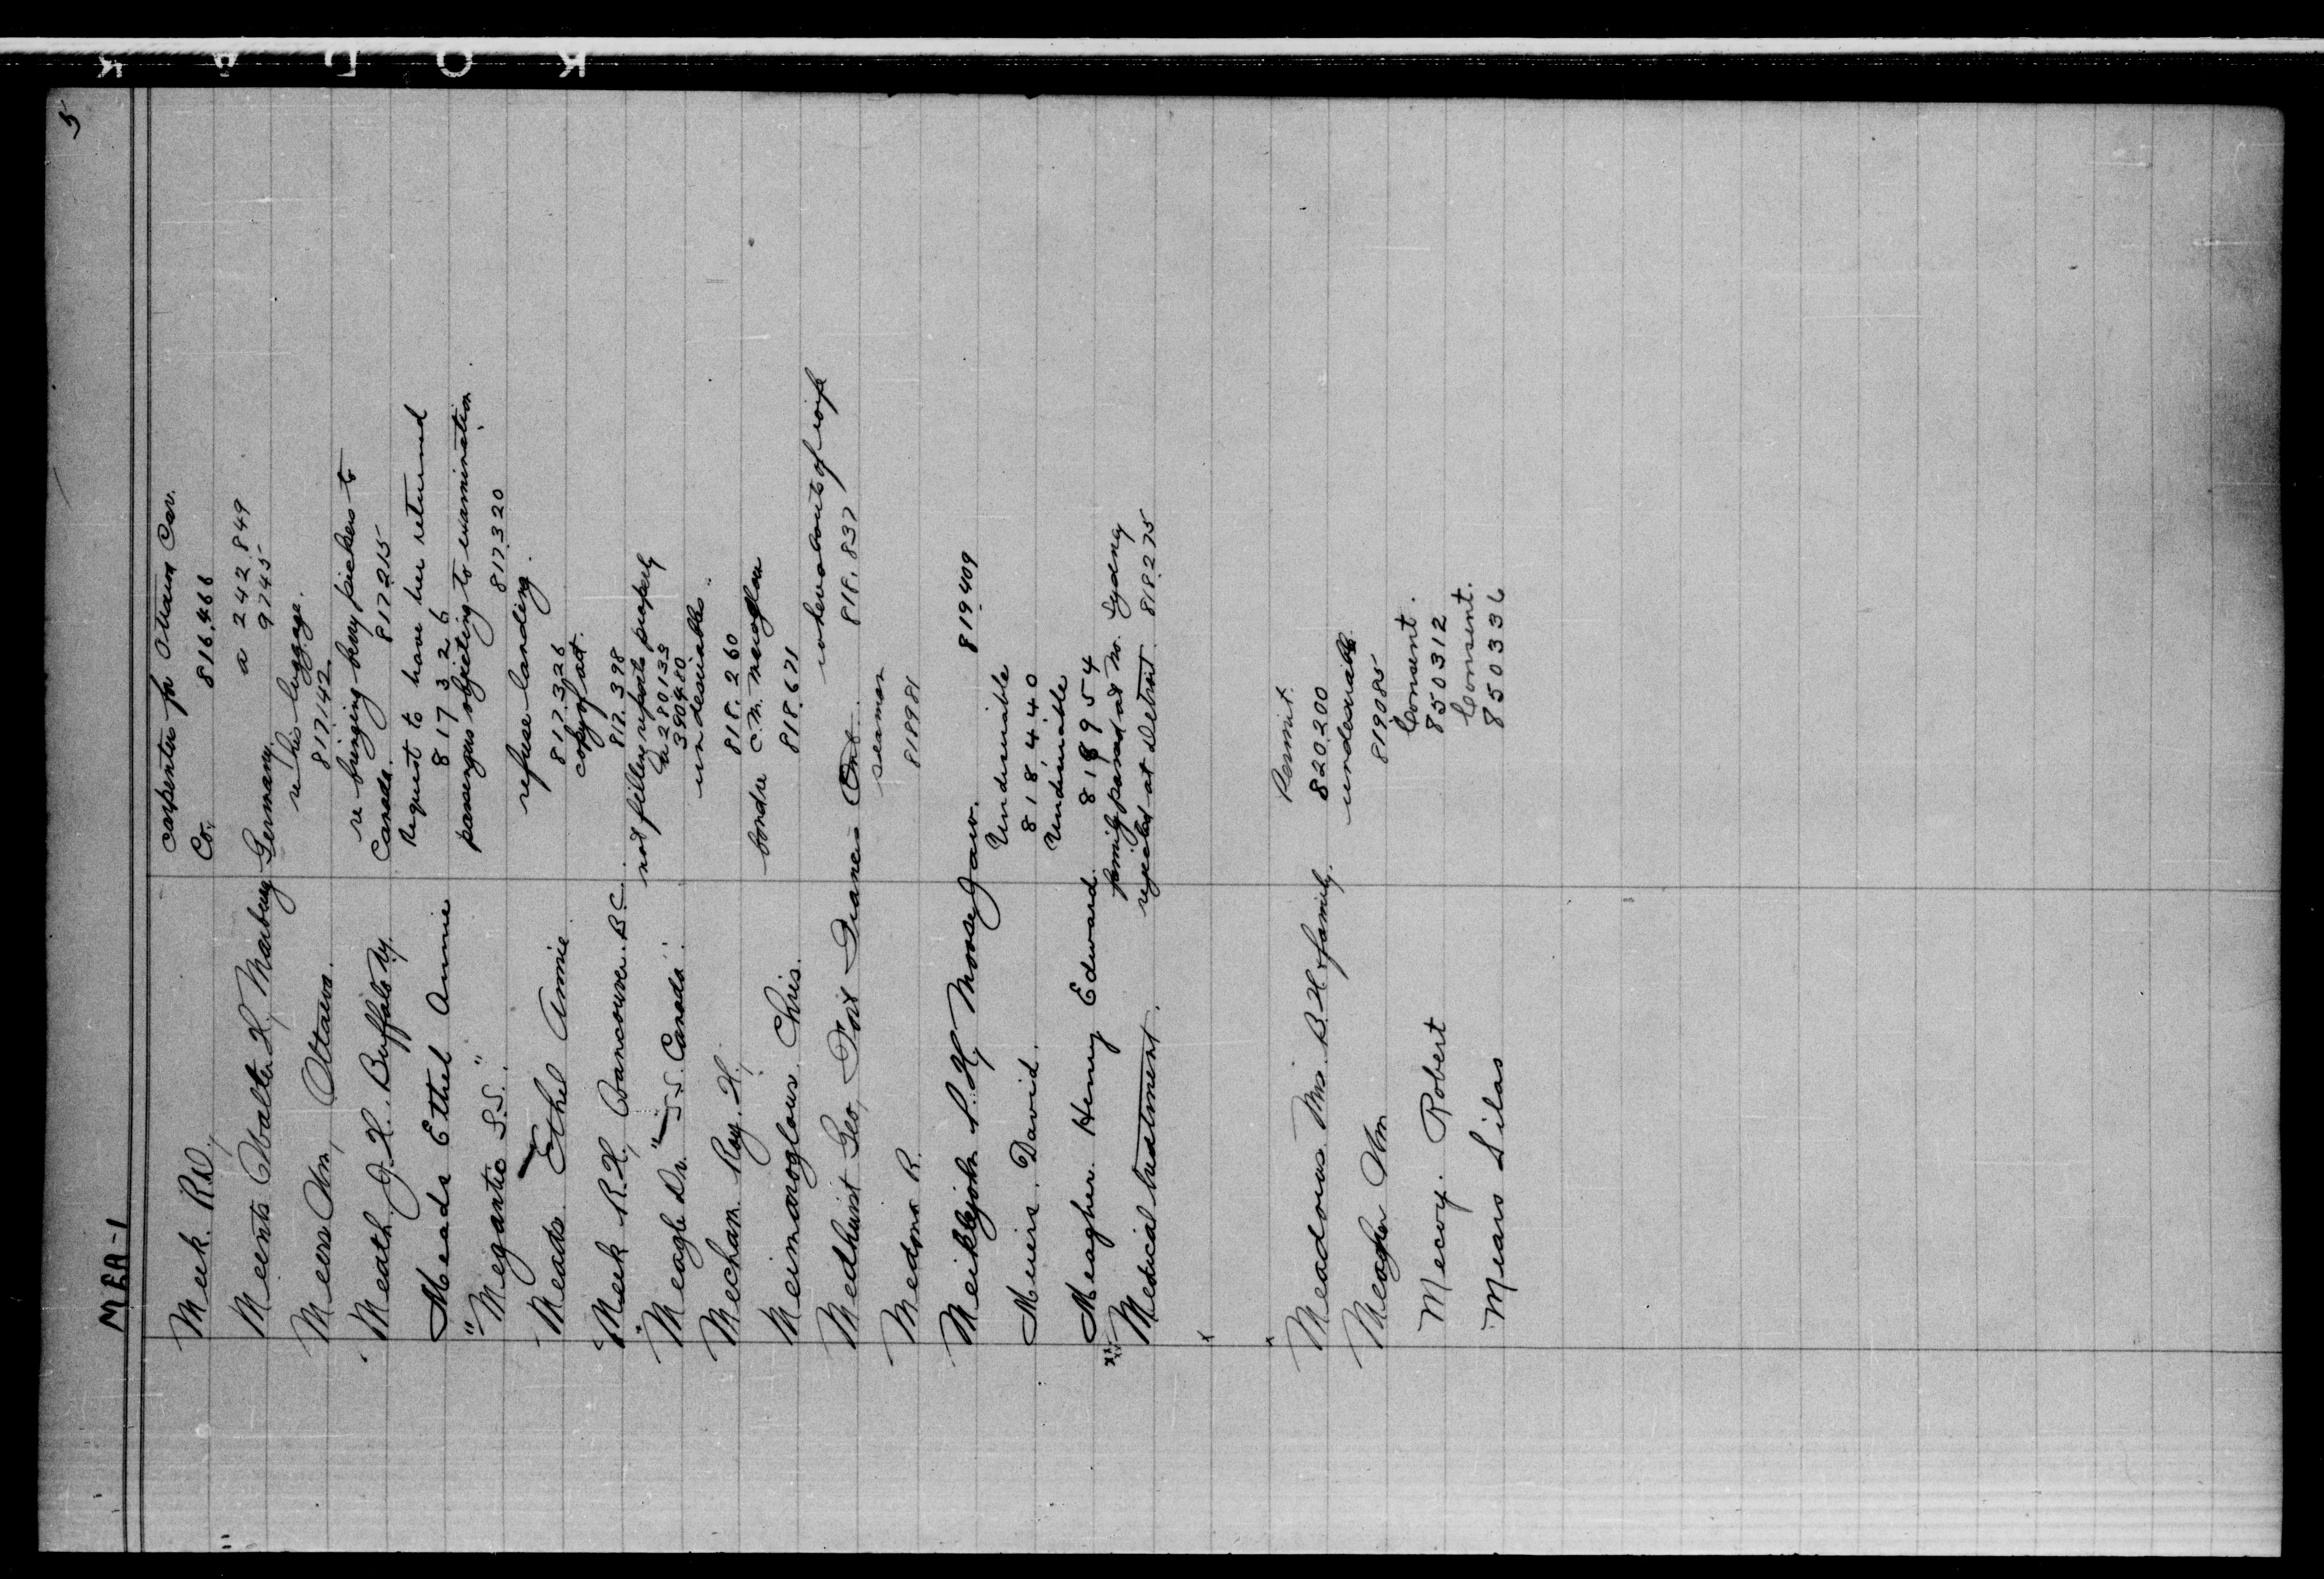 5
MEA-1
Meek. R.W., carpenter for Ottawa Car.
Co., 816,466
Meents Walter H, Marburg Germany. a 242,849
9745
Meers Wm, Ottawa. re his luggage.
817,142
Meath J.H. Buffalo Ny. re bringing berry pickers to
Canada. 817215
Meads Ethel Annie Request to have her returned
817326
"Megantic S.S." passengers objecting to examination
817320
Meads Ethel Annie refuse landing.
817,326
Meek R.H., Vancouver. B.C. copy of act.
817,398
Meagle Dr. "S.S. Canada". not filling reports properly
a 280133
390480
Mecham. Ray. H., undesirable.
818.260
Meimaroglous. Chris. bond re C.M.
818,671
Medhurst Geo, Fort Frances Ont. whereabouts of wife
818,837
Medona R. seaman
818981
Meiklejohn S.H, Moose Jaw. 819409
Meirs. David. Undesirable
818440
Meagher. Henry Edward. Undesirable
818954
Medical treatment. family passed at No. Sydney
rejected at Detroit 818275
Meadows Mrs. B.H & family. Permit.
820,200
Meagher Wm undesirable.
819085
Mecoy. Robert Consent.
850312
Mears Silas Consent.
850336
KADOK